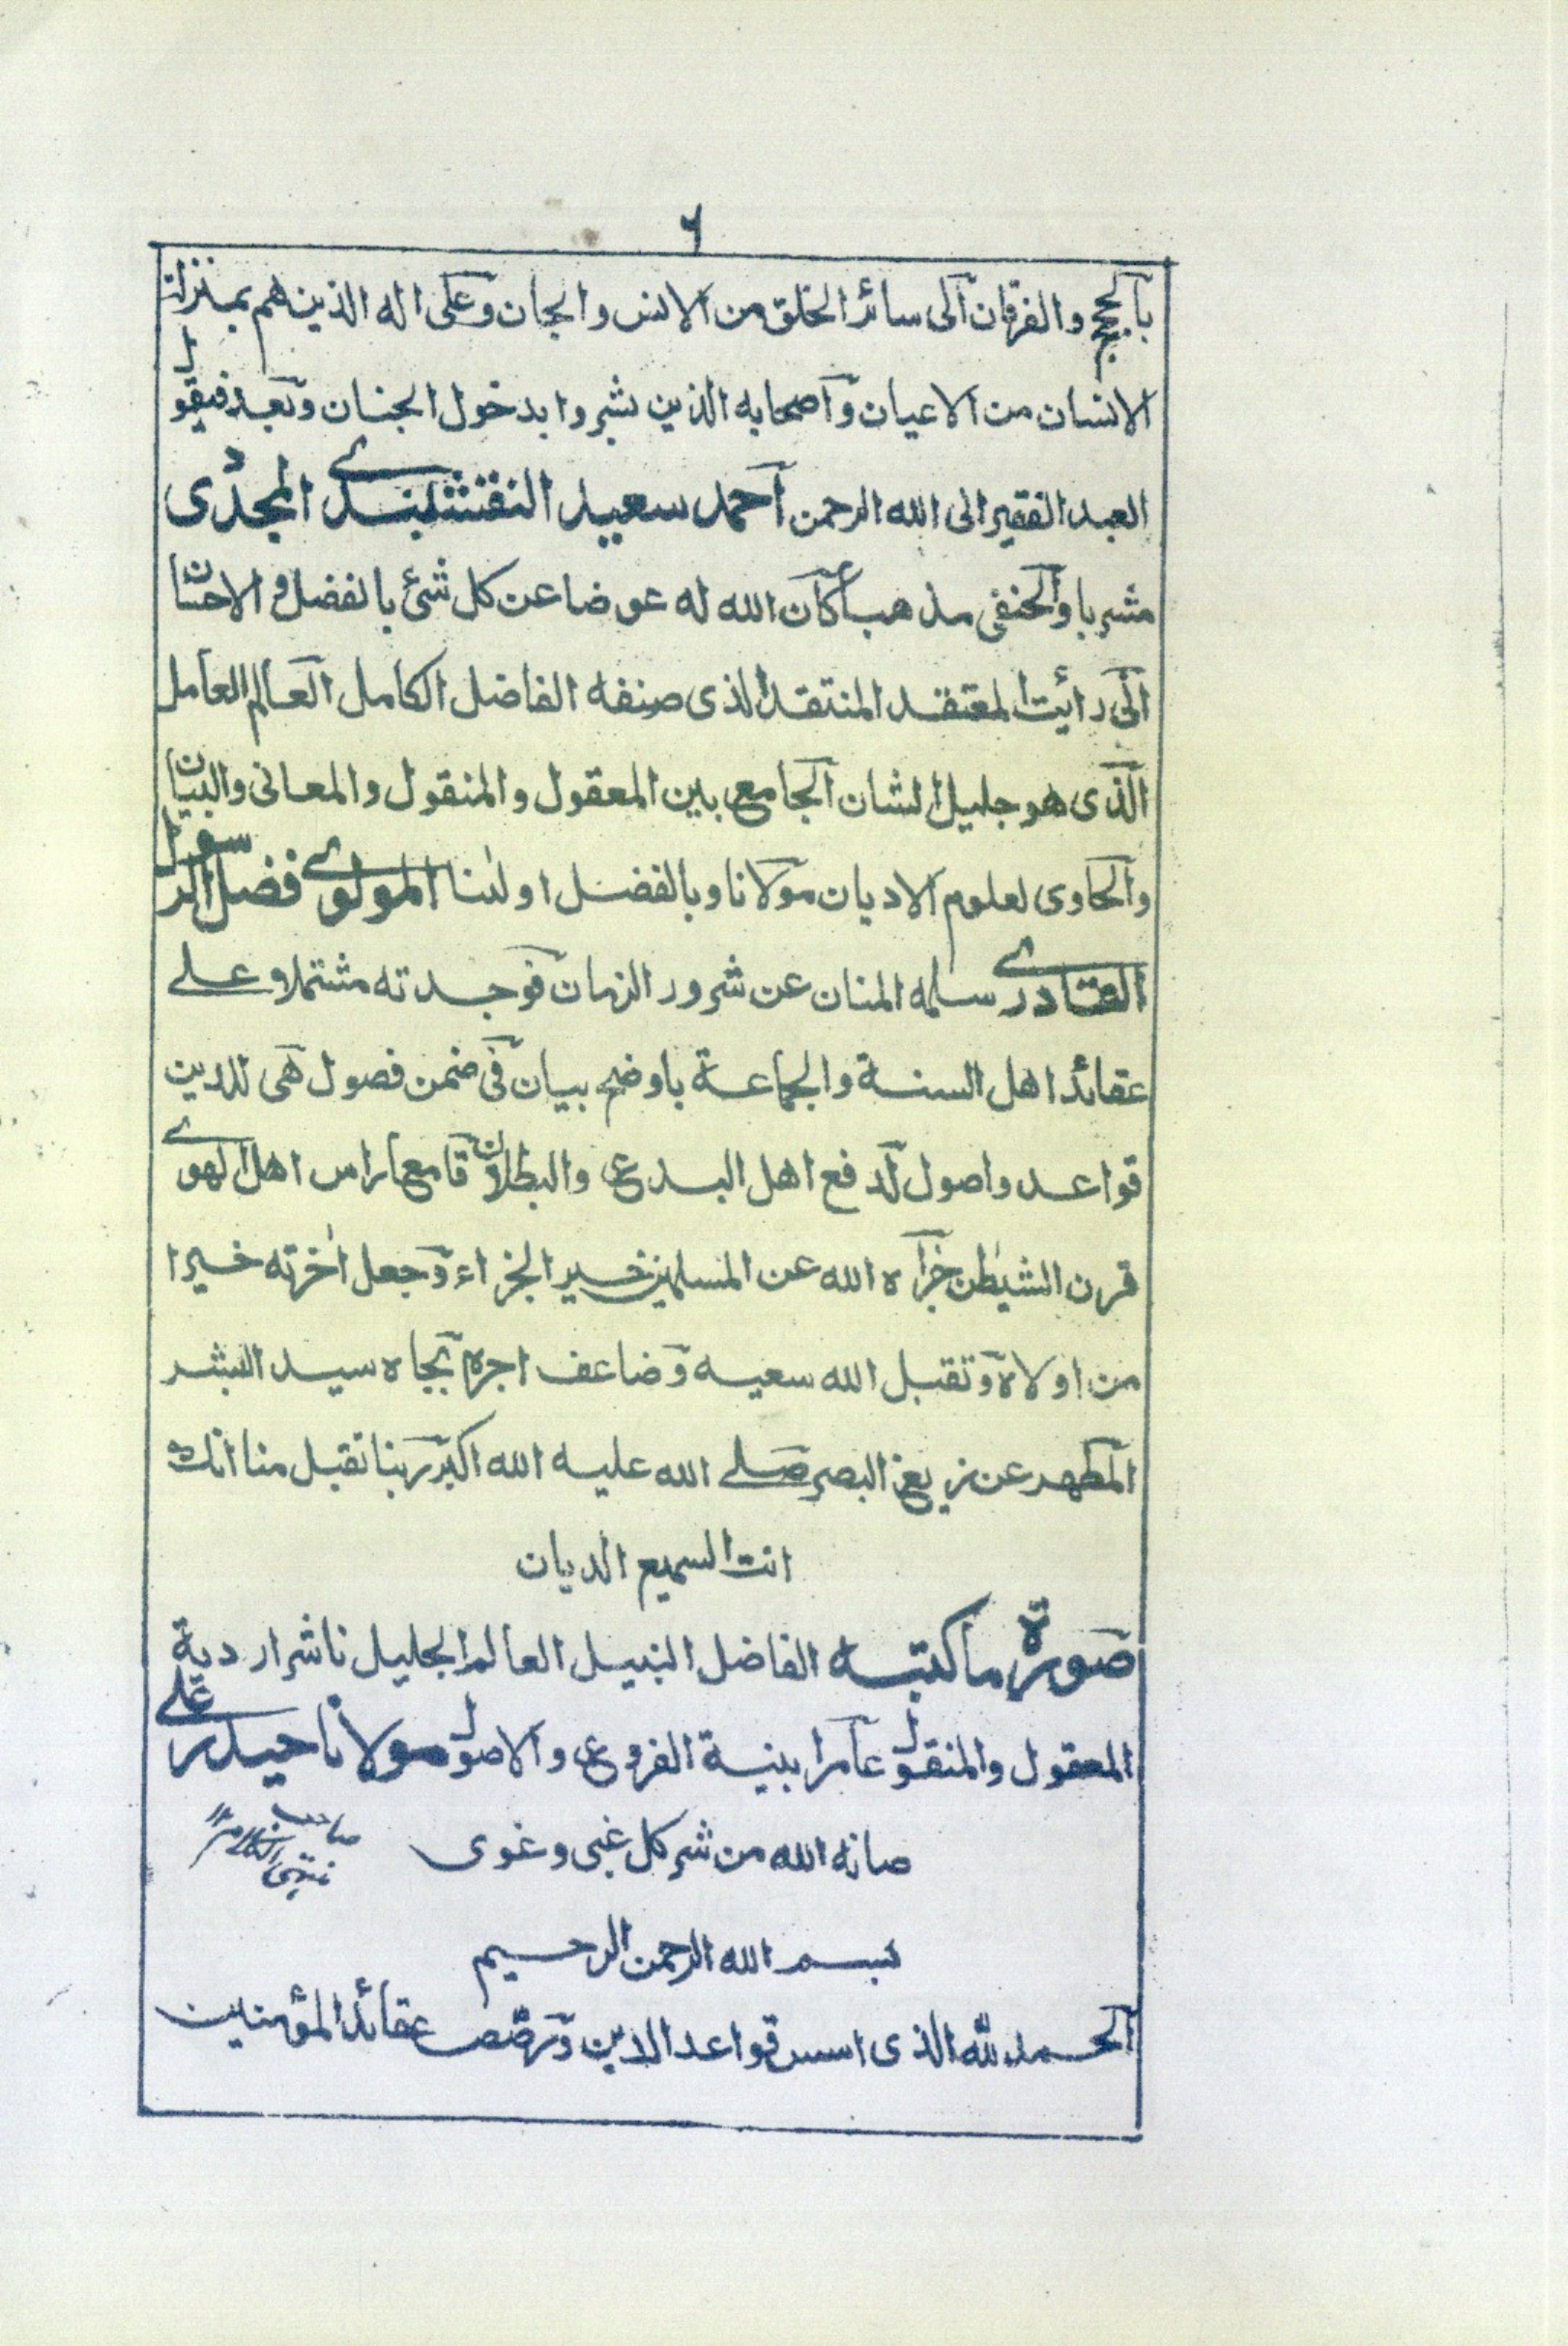 ٦
بالحجج والفرقان الى سائر الخلق من الانس والجان وعلى اله الذين هم بمنزلة
الانسان من الاعيان واصحابه الذين بشروا بدخول الجنان وبعد فيقول
العبد الفقير الى الله الرحمن احمد سعيد النقشبندى المجددى
مشربا والحنفى مذهبا كان الله له عوضا عن كل شئ بالفضل والاحسان
انى رائيت المعتقد المنتقد الذى صنفه الفاضل الكامل العالم العامل
الذى هو جليل الشان الجامع بين المعقول والمنقول والمعانى والبيان
والحاوى لعلوم الاديان مولانا وبالفضل اولٰنا المولوى فضل الرسول
القادرى سلمه المنان عن شرور الزمان فوجدته مشتملا على
عقائد اهل السنة والجماعة باوضح بيان فى ضمن فصول هى للدين
قواعد واصول لدفع اهل البدع والبطلان قامعا راس اهل الهوى
قرن الشيطٰن جزاه الله عن المسلمين خير الجزاء وجعل اٰخرته خيرا
من اولاه وتقبل الله سعيه وضاعف اجره بجاه سيد البشر
المطهر عن زيغ البصر صلى الله عليه الله اكبر ربنا تقبل منا انك
انت السميع الديان
صورة ما كتبه الفاضل النبيل العالم الجليل ناشر اردية
المعقول والمنقول عامر ابنية الفروع والاصول مولانا حيدر على
صانه الله من شر كل غبى وغوى
بسم الله الرحمن الرحيم
الحمد لله الذى اسس قواعد الدين ورصص عقائد المؤمنين